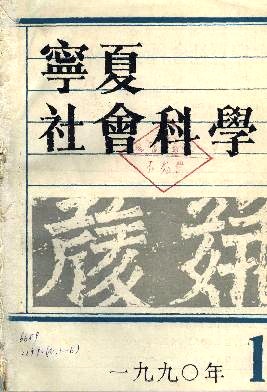 寧夏
社會科學
一九九〇年
1